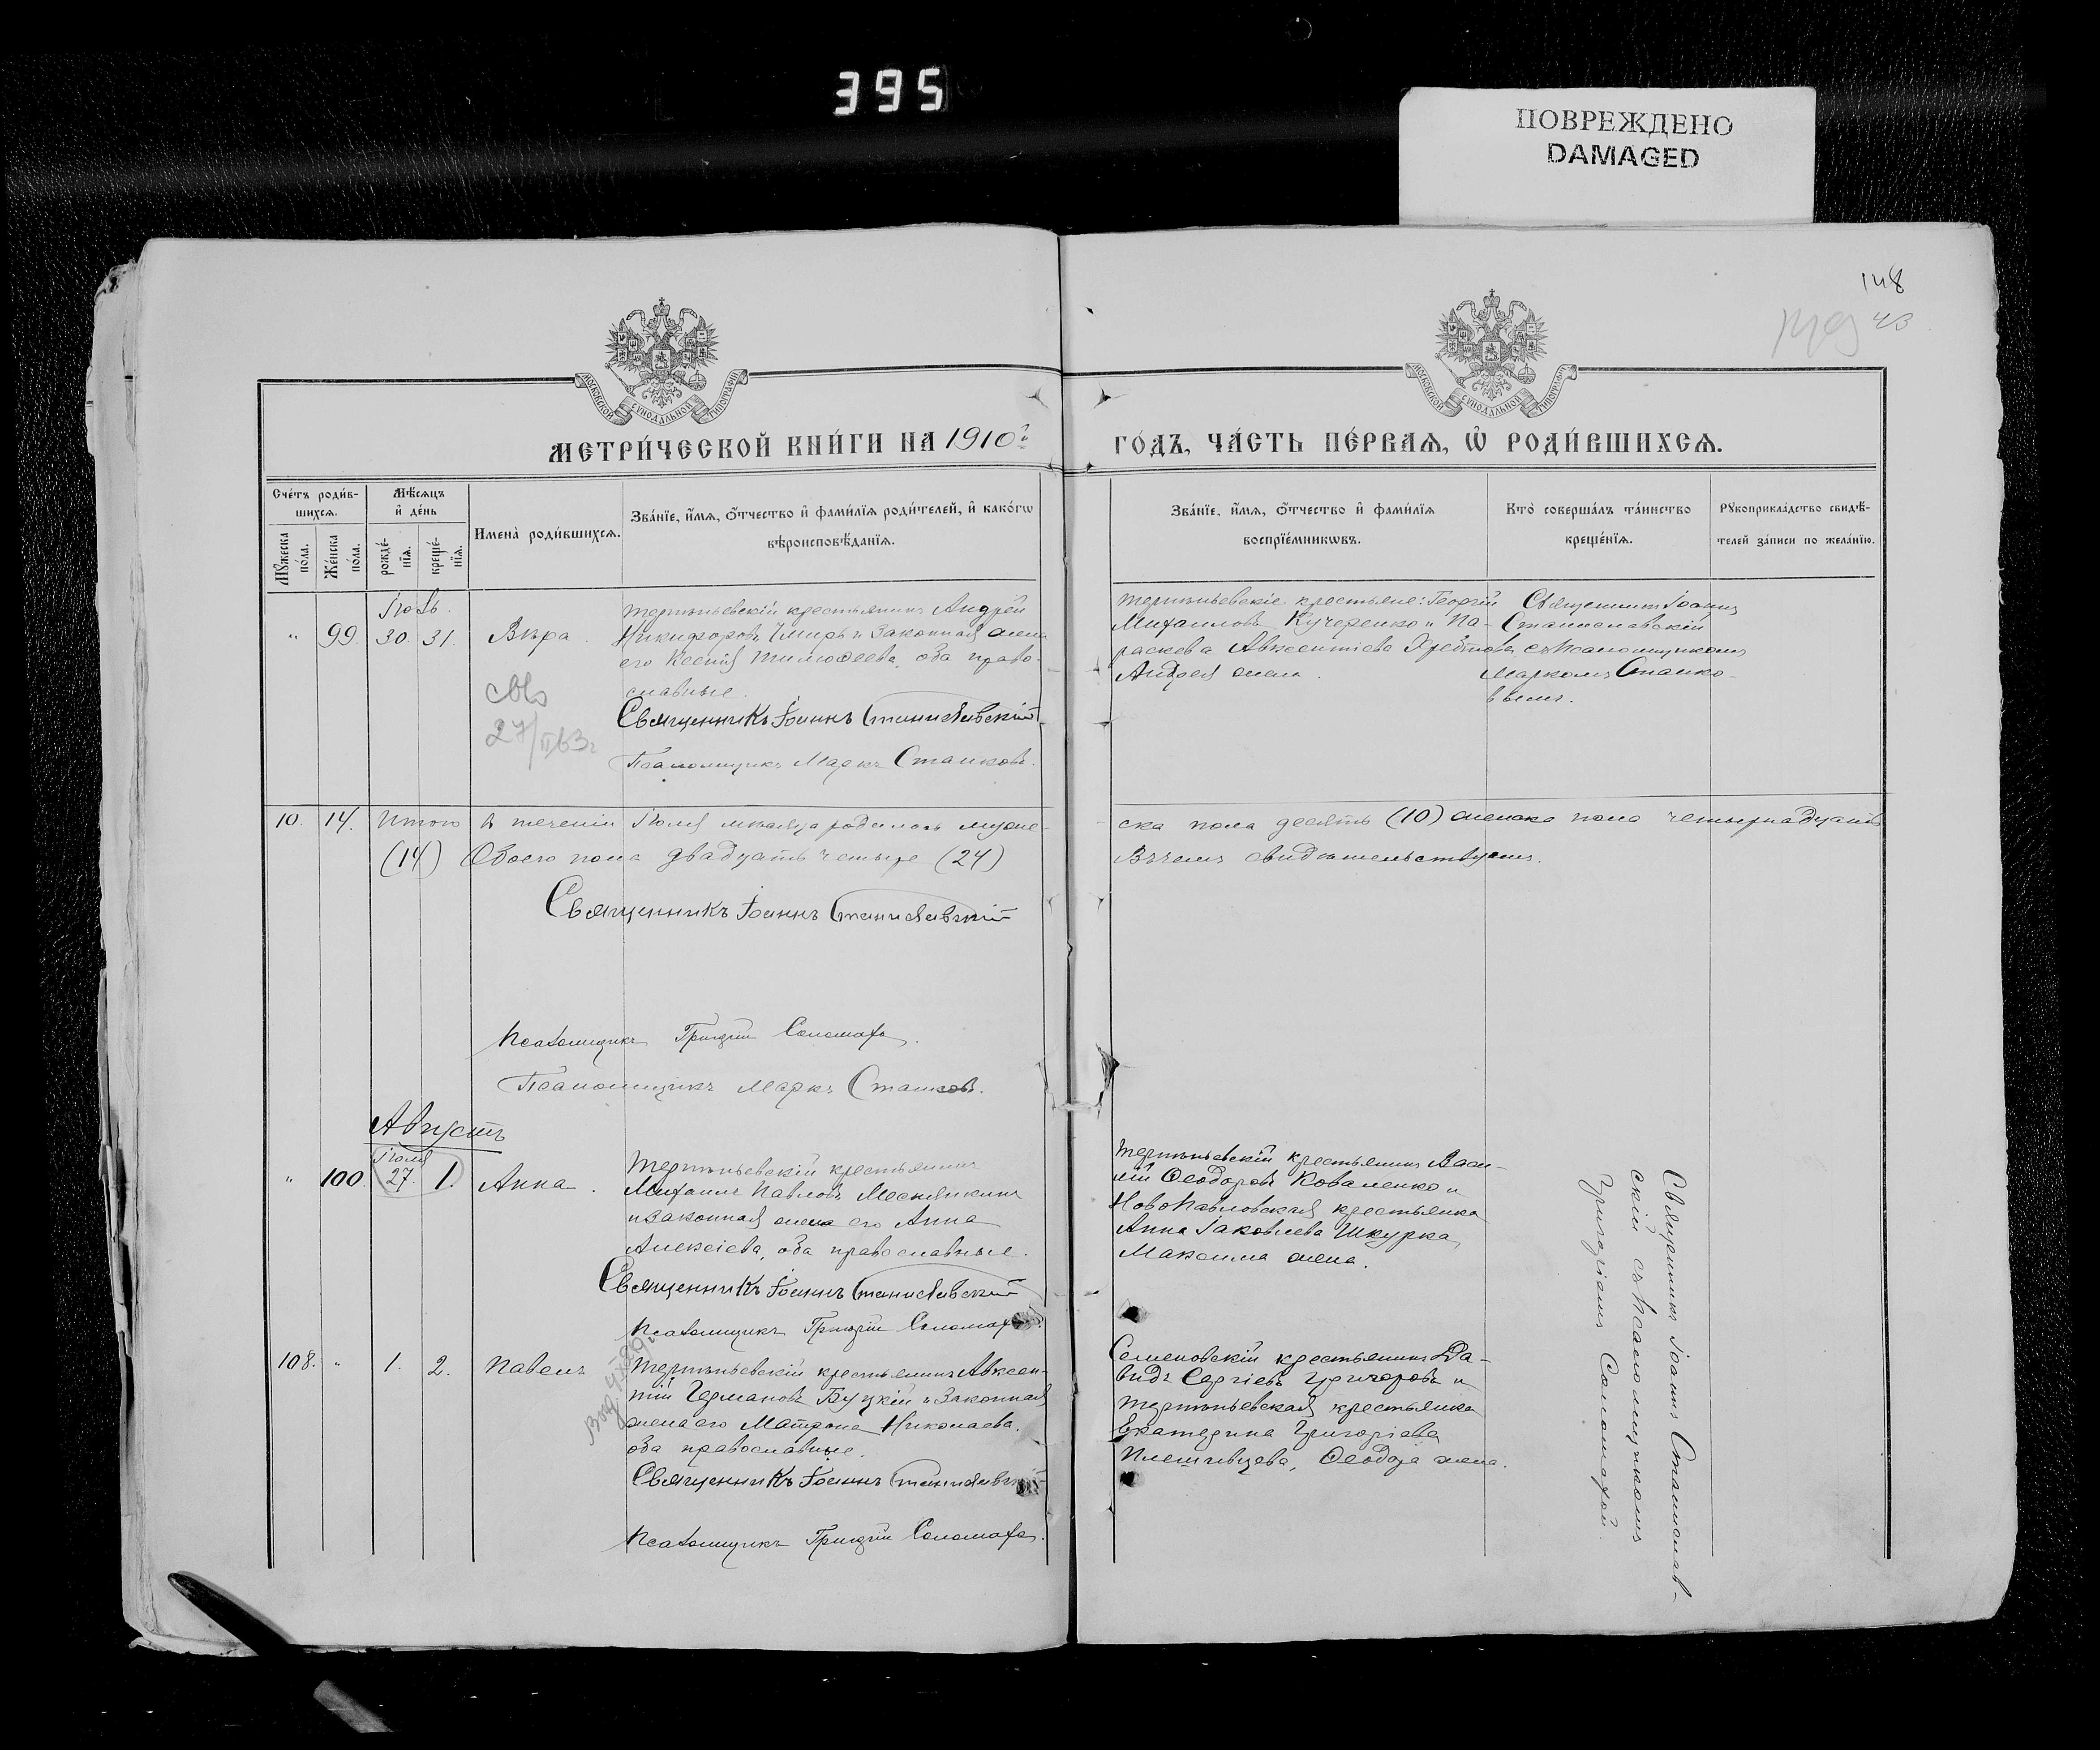 395
ПОВРЕЖДЕНО
DAMAGED
148
43
МОСКОВСКОЙ СѴНОДАЛЬНОЙ ТИПОГРАФІИ
МОСКОВСКОЙ СѴНОДАЛЬНОЙ ТИПОГРАФІИ
МЕТРИ́ЧЕСКОЙ КНИ́ГИ НА 1910 й
ГО́ДЪ, ЧА́СТЬ ПЕ́РВАѦ, Ѡ҆ РОДИ́ВШИХСѦ.
Сче́тъ роди́в-
шихсѧ.
Мѣ́сѧцъ
и҆ де́нь
Мꙋ́жеска
по́ла.
Же́нска
по́ла.
рожде́-
нїѧ.
креще́-
нїѧ.
Имена̀ роди́вшихсѧ.
Зва́нїе, и҆́мѧ, ѻ҆́тчество и҆ фами́лїѧ роди́телей, и҆ како́гѡ
вѣроисповѣ́данїѧ.
Зва́нїе, и҆́мѧ, ѻ҆́тчество и҆ фами́лїѧ
воспрїе́мникѡвъ.
Кто̀ соверша́лъ та́инство
креще́нїѧ.
Рꙋкоприкла́дство свидѣ́-
телей за́писи по жела́нїю.
Іюль.
" 99. 30. 31. Вѣра.
Терпѣньевскій крестьянинъ Андрей
Никифоровъ Чмиръ и законная жена
его Ксенія Тимоѳеева, оба право-
славные.
Священникъ Іоаннъ Станиславскій
Псаломщикъ Маркъ Станковъ.
27/II 63 г
Терпѣньевскіе крестьяне: Георгій
Михаиловъ Кучеренко и Па-
раскева Авксентіева
Андрея жена.
Священникъ Іоаннъ
Станиславскій
съ псаломщикомъ
Маркомъ Станко-
вымъ.
10. 14. Итого въ теченіи Іюля мѣсяца родилось муже-
ска пола десять (10) женска пола четырнадцать
(14) Обоего пола двадцать четыре (24)
Въ чемъ свидѣтельствуемъ.
Священникъ Іоаннъ Станиславскій
Псаломщикъ Григорій Соломаха.
Псаломщикъ Маркъ Станковъ.
Августъ
Іюля
" 100. 27. 1. Анна.
Терпѣньевскій крестьянинъ
Михаилъ Павловъ
и законная жена его Анна
Алексіева, оба православные.
Священникъ Іоаннъ Станиславскій
Псаломщикъ Григорій Соломаха.
Терпѣньевскій крестьянинъ Васи-
лій Ѳеодоровъ Коваленко и
Новопавловская крестьянка
Анна Іаковлева Шкурка,
Максима жена.
108. " 1. 2. Павелъ
Терпѣньевскій крестьянинъ Авксен-
тій Германовъ Буцкій и законная
жена его Матрона Николаева,
оба православные.
Священникъ Іоаннъ Станиславскій
Псаломщикъ Григорій Соломаха.
Семеновскій крестьянинъ Да-
видъ Сергіевъ Григоровъ и
Терпѣньевская крестьянка
Екатерина Григоріева
Плешивцева, Ѳеодора жена.
Священникъ Іоаннъ Станислав-
скій съ псаломщикомъ
Григоріемъ Соломахой.